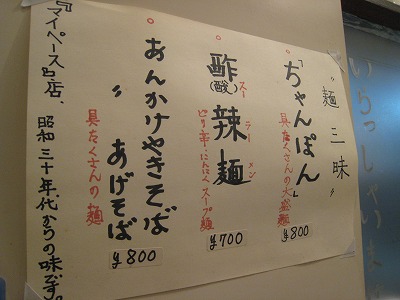 〃麺三昧〃
「ちゃんぽん」
具たくさんの大盛麺
¥800
酢辣麺
(酸)
スーラーメン
ピリ辛・にんにくスープ麺
¥700
あんかけやきそば
〃 あげそば
具たくさんの麺
¥800
『マイペース』な店、昭和三十年代からの味です。
いらっしゃいま